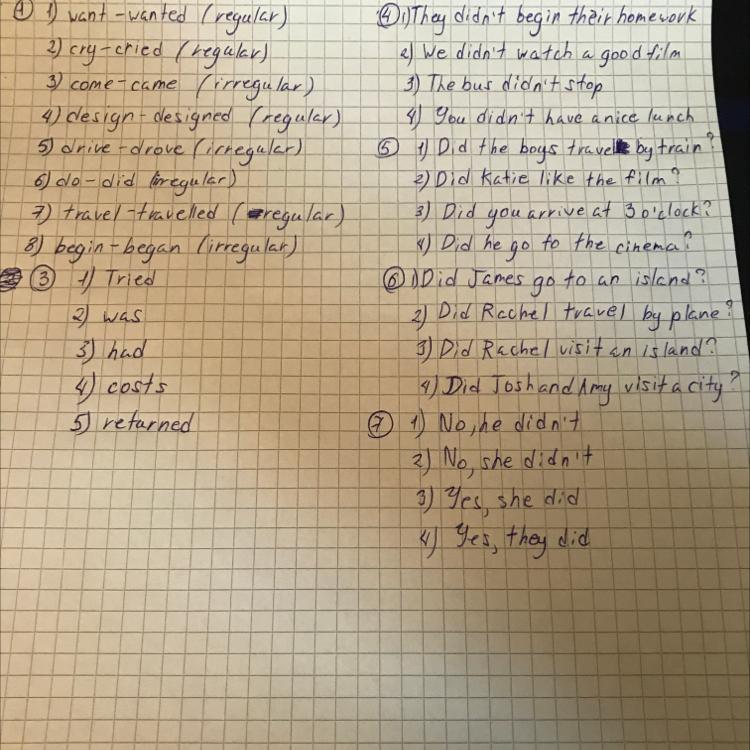 ① 1) want-wanted (regular)
2) cry-cried (regular)
3) come-came (irregular)
4) design-designed (regular)
5) drive-drove (irregular)
6) do-did (irregular)
7) travel-travelled (regular)
8) begin-began (irregular)
③ 1) Tried
2) was
3) had
4) costs
5) returned
④ 1) They didn't begin their homework
2) We didn't watch a good film
3) The bus didn't stop
4) You didn't have a nice lunch
⑤ 1) Did the boys travel by train?
2) Did Katie like the film?
3) Did you arrive at 3 o'clock?
4) Did he go to the cinema?
⑥ 1) Did James go to an island?
2) Did Rachel travel by plane?
3) Did Rachel visit an island?
4) Did Josh and Amy visit a city?
⑦ 1) No, he didn't
2) No, she didn't
3) Yes, she did
4) Yes, they did